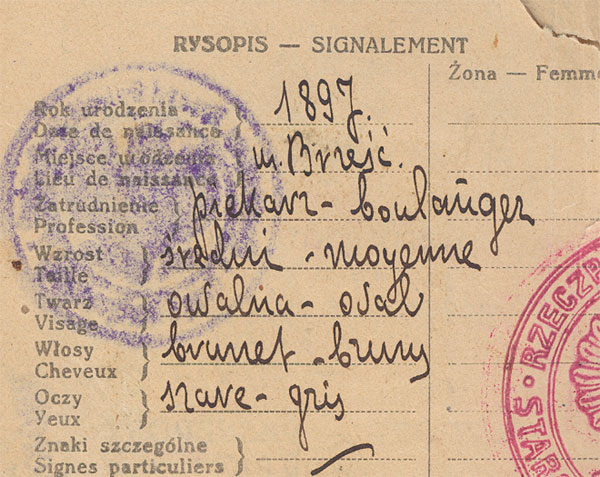 RYSOPIS — SIGNALEMENT
Żona — Femme
Rok urodzenia
Date de naissance
1897.
Miejsce urodzenia
Lieu de naissance
m. Brześć.
Zatrudnienie
Profession
piekarz - boulanger
Wzrost
Taille
średni - moyenne
Twarz
Visage
owalna - oval
Włosy
Cheveux
brunet - bruns
Oczy
Yeux
szare - gris
Znaki szczególne
Signes particuliers
RZECZP
STAR